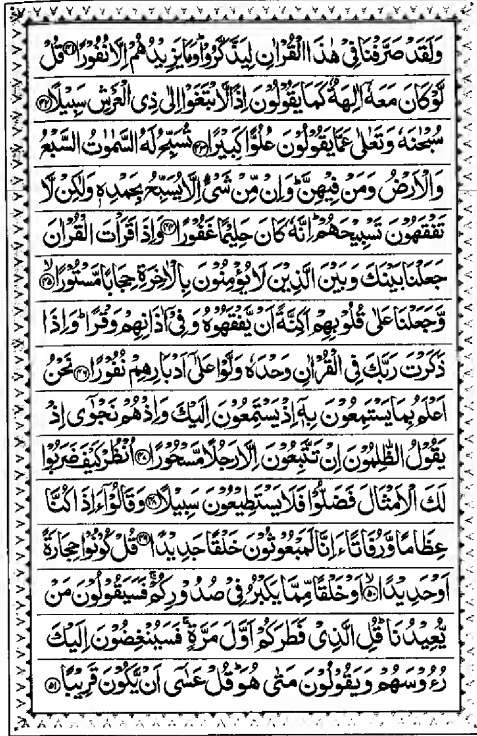 وَلَقَدْ صَرَّفْنَا فِیْ هٰذَا الْقُرْاٰنِ لِیَذَّكَّرُوْاؕ وَمَا یَزِیْدُهُمْ اِلَّا نُفُوْرًا۝۴۱ قُلْ
لَّوْ كَانَ مَعَهٗۤ اٰلِهَةٌ كَمَا یَقُوْلُوْنَ اِذًا لَّابْتَغَوْا اِلٰی ذِی الْعَرْشِ سَبِیْلًا۝۴۲
سُبْحٰنَهٗ وَتَعٰلٰی عَمَّا یَقُوْلُوْنَ عُلُوًّا كَبِیْرًا۝۴۳ تُسَبِّحُ لَهُ السَّمٰوٰتُ السَّبْعُ
وَالْاَرْضُ وَمَنْ فِیْهِنَّؕ وَاِنْ مِّنْ شَیْءٍ اِلَّا یُسَبِّحُ بِحَمْدِهٖ وَلٰكِنْ لَّا
تَفْقَهُوْنَ تَسْبِیْحَهُمْؕ اِنَّهٗ كَانَ حَلِیْمًا غَفُوْرًا۝۴۴ وَاِذَا قَرَاْتَ الْقُرْاٰنَ
جَعَلْنَا بَیْنَكَ وَبَیْنَ الَّذِیْنَ لَا یُؤْمِنُوْنَ بِالْاٰخِرَةِ حِجَابًا مَّسْتُوْرًاۙ۝۴۵
وَّجَعَلْنَا عَلٰی قُلُوْبِهِمْ اَكِنَّةً اَنْ یَّفْقَهُوْهُ وَفِیْۤ اٰذَانِهِمْ وَقْرًاؕ وَاِذَا
ذَكَرْتَ رَبَّكَ فِی الْقُرْاٰنِ وَحْدَهٗ وَلَّوْا عَلٰۤی اَدْبَارِهِمْ نُفُوْرًا۝۴۶ نَحْنُ
اَعْلَمُ بِمَا یَسْتَمِعُوْنَ بِهٖۤ اِذْ یَسْتَمِعُوْنَ اِلَیْكَ وَاِذْ هُمْ نَجْوٰۤی اِذْ
یَقُوْلُ الظّٰلِمُوْنَ اِنْ تَتَّبِعُوْنَ اِلَّا رَجُلًا مَّسْحُوْرًا۝۴۷ اُنْظُرْ كَیْفَ ضَرَبُوْا
لَكَ الْاَمْثَالَ فَضَلُّوْا فَلَا یَسْتَطِیْعُوْنَ سَبِیْلًا۝۴۸ وَقَالُوْۤا ءَاِذَا كُنَّا
عِظَامًا وَّرُفَاتًا ءَاِنَّا لَمَبْعُوْثُوْنَ خَلْقًا جَدِیْدًا۝۴۹ قُلْ كُوْنُوْا حِجَارَةً
اَوْ حَدِیْدًاۙ۝۵۰ اَوْ خَلْقًا مِّمَّا یَكْبُرُ فِیْ صُدُوْرِكُمْۚ فَسَیَقُوْلُوْنَ مَنْ
یُّعِیْدُنَاؕ قُلِ الَّذِیْ فَطَرَكُمْ اَوَّلَ مَرَّةٍۚ فَسَیُنْغِضُوْنَ اِلَیْكَ
رُءُوْسَهُمْ وَیَقُوْلُوْنَ مَتٰی هُوَؕ قُلْ عَسٰۤی اَنْ یَّكُوْنَ قَرِیْبًا۝۵۱